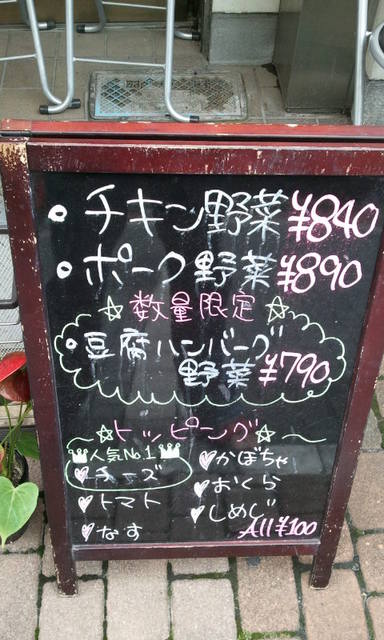 チキン野菜 ¥840
ポーク野菜 ¥890
☆数量限定☆
豆腐ハンバーグ
野菜 ¥790
~☆トッピング☆~
人気No.1
チーズ
トマト
なす
かぼちゃ
おくら
しめじ
All ¥100